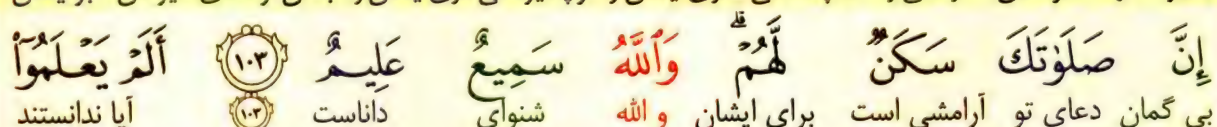 إِنَّ صَلَوٰتَكَ سَكَنٌ لَّهُمْ ۗ وَٱللَّهُ سَمِيعٌ عَلِيمٌ ١٠٣ أَلَمْ يَعْلَمُوٓا۟
بی گمان دعای تو آرامشی است برای ایشان و الله شنوای داناست ١٠٣ آیا ندانستند